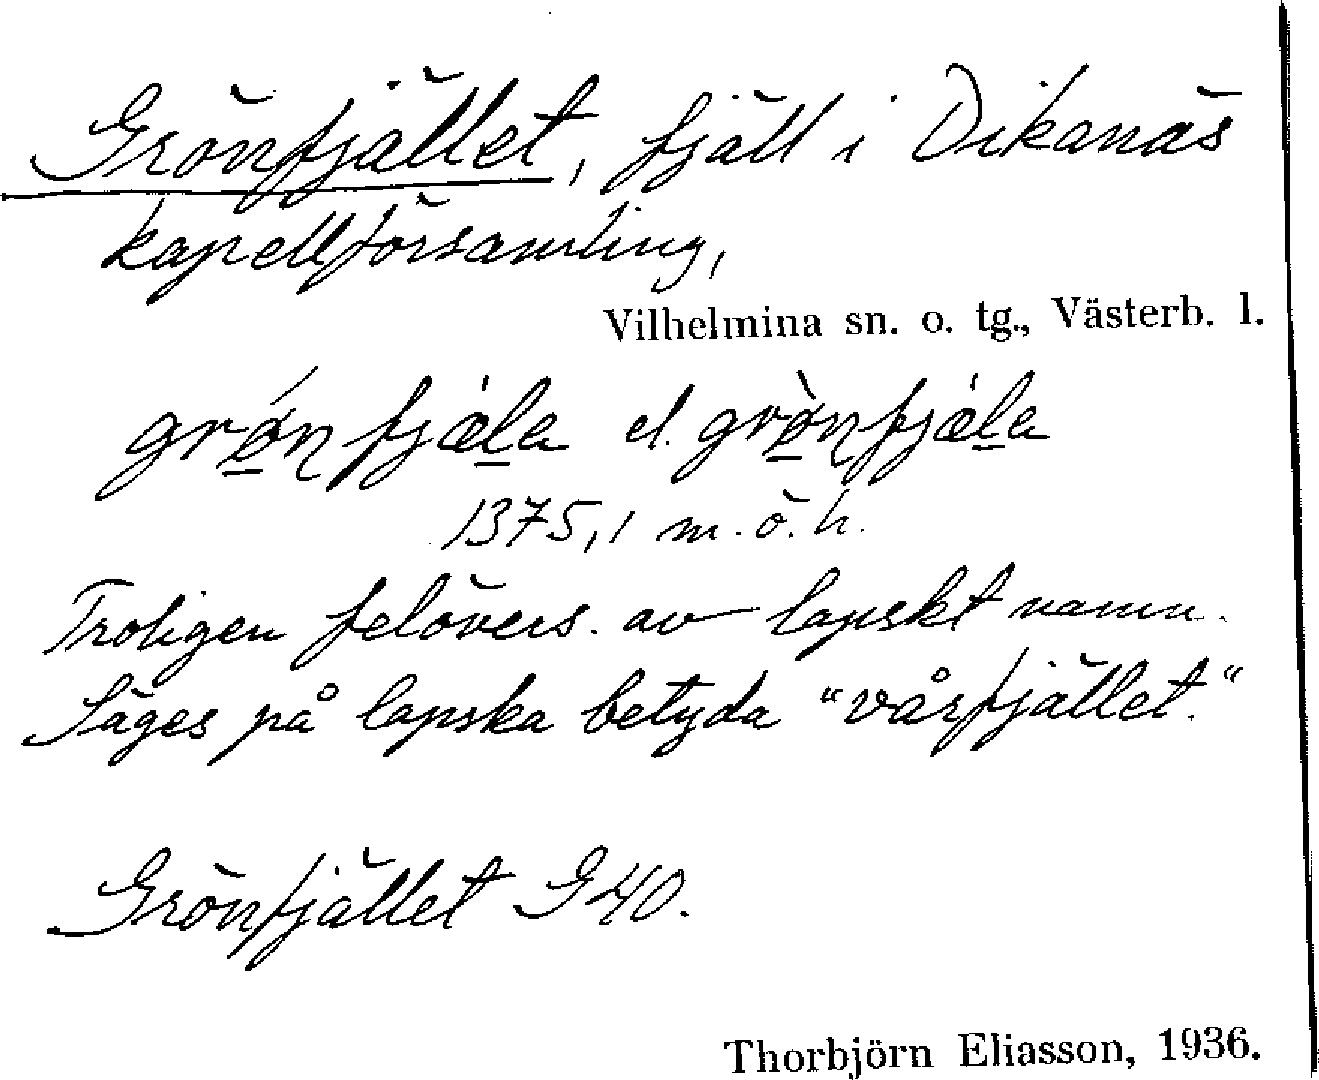 Grönfjället, fjäll i Dikanäs
kapellförsamling,
Vilhelmina sn. o. tg., Västerb. l.
grǿnfjæla el. grø̀nfjæla
1375,1 m.ö.h.
Troligen felövers. av lapskt namn.
Säges på lapska betyda "vårfjället."
Grönfjället G 40.
Thorbjörn Eliasson, 1936.